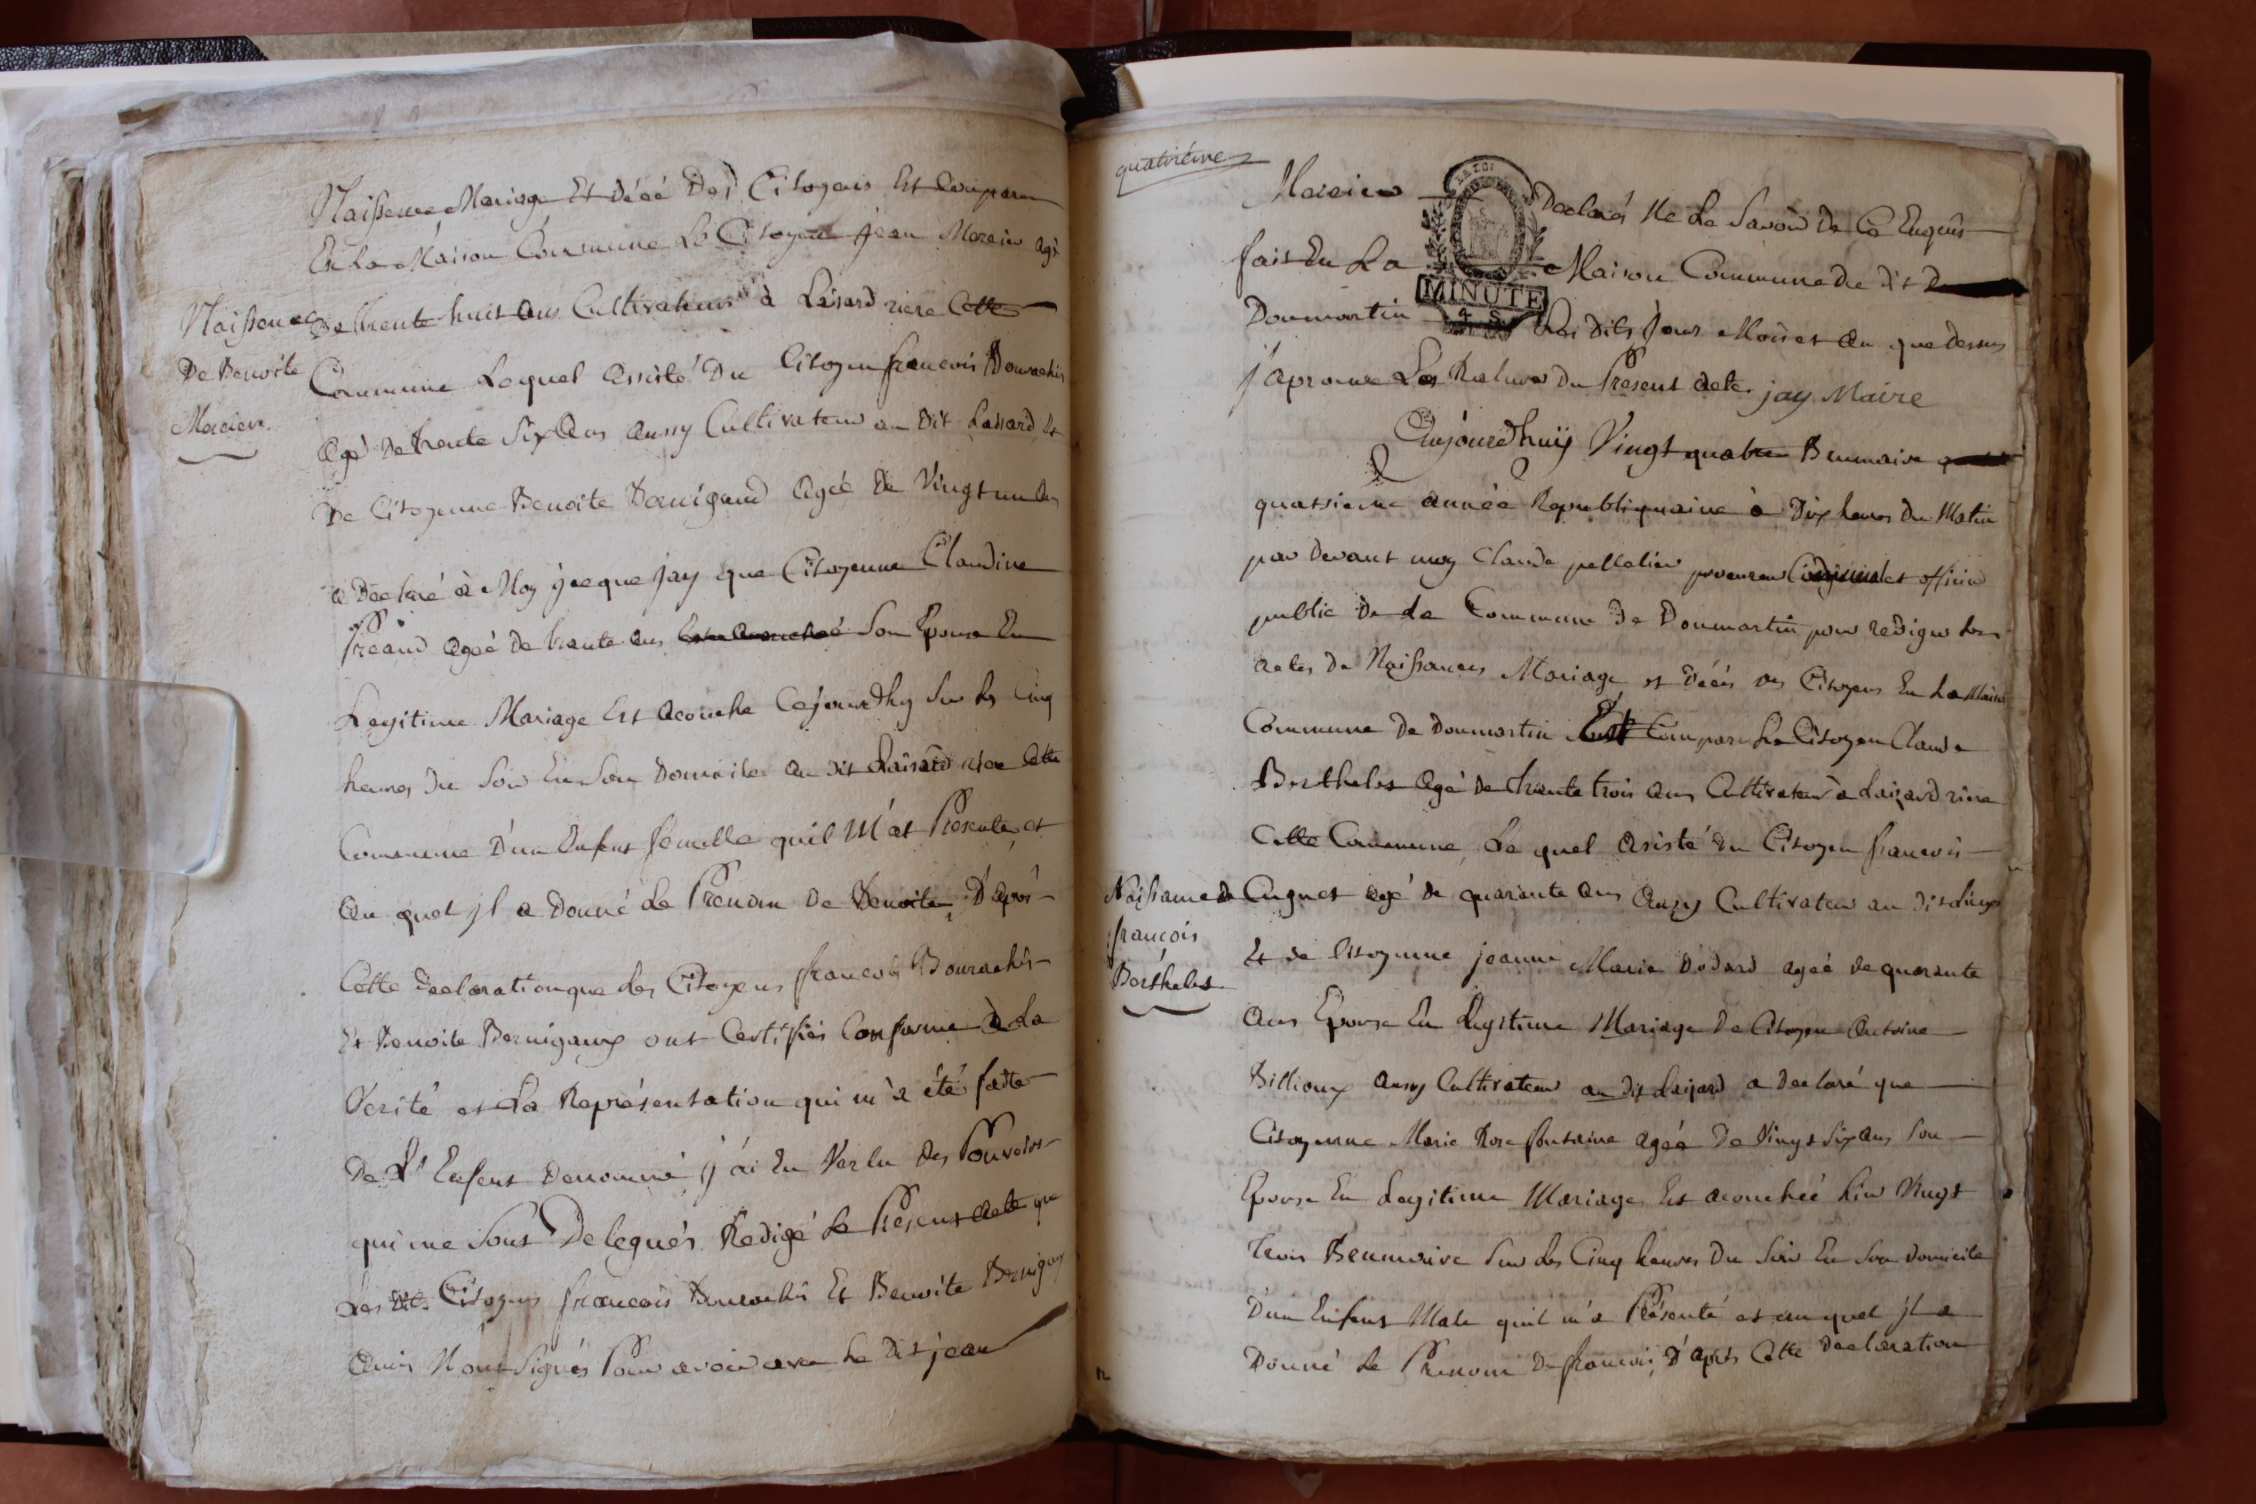 Naissance Mariage Et Décé Des Citoyens Est Comparu
En La Maison Commune Le Citoyen jean Mercier agé
Naissance
De Benoite
Mercier
De trente huit ans Cultivateur à Laisard riere Cette
Commune Lequel assisté Du Citoyen francois Bourachis
agé De trente Six ans aussy Cultivateur au Dit Laisard Et
De Citoyenne Benoite Bernigaud agée De Vingt un ans
a Déclaré à Moy jacque jay que Citoyenne Claudine
agée de trante ans Son Epouse En
Legitime Mariage Est acouché Cejourdhuy Sur les Cinq
heures Du Soir En Son Domicile au dit Laisard riere Cette
Commune D'un Enfent femelle quil M'at Présenté et
au quel jl a Donné Le Prenom De Benoite, D'après
Cette Declaration que les Citoyens francois Bourachis
Et Benoite Bernigaux ont Certifiés Conforme à La
Verité et La Représentation qui m'a été faitte
De L' Enfent Denommé j'ai En Vertu Des Pouvoirs
qui me Sont Delegués Redigé Le Présent acte que
Les Citoyens francois Bourachis Et Benoite Bernigaux
Signés Pour avoir avec Le Dit jean
quatriéme
Mercier Declarés Ne Le Savoir De Ce Enquis
fait En La Maison Commune du dit D
LA LOI
MINUTE
4 S
Doumartin Les Dits Jour Mois et an que dessus
J'aprouve Les Ratures Du Present acte jay Maire
Aujourdhuÿ Vingt quatre Brumaire
quatrieme année Republiquaine à Dix heures Du Matin
par Devant moy Claude pelletier procureur et officier
public De La Commune De Doumartin pour rediger Les
actes De Naissances Mariage et Décés des Citoyens En La Maison
Commune De Doumartin Est Comparu Le Citoyen Claude
Berthelet agé De trante trois ans Cultivateur à Laizard riere
Cette Commune, Le quel asisté du Citoyen francois
Naissance de
françois
Berthelet
Cuguet agé De quarante ans aussy Cultivateur au dit
Et de Citoyenne jeanne Marie Dodard agée De quarante
ans Epouse En Legitime Mariage De Citoyen Antoine
Billioux aussy Cultivateur au dit Laizard a declaré que
Citoyenne Marie Rose fontaine agée De Vingt Six ans Son
Epouse En Legitime Mariage Est acouchée hier Vingt
trois Brumaire Sur Les Cinq heures Du Soir En Son domicile
D'un Enfent Male quil m'a Présenté et au quel jl a
Donné Le Prenom De francois, D'aprés Cette Declaration